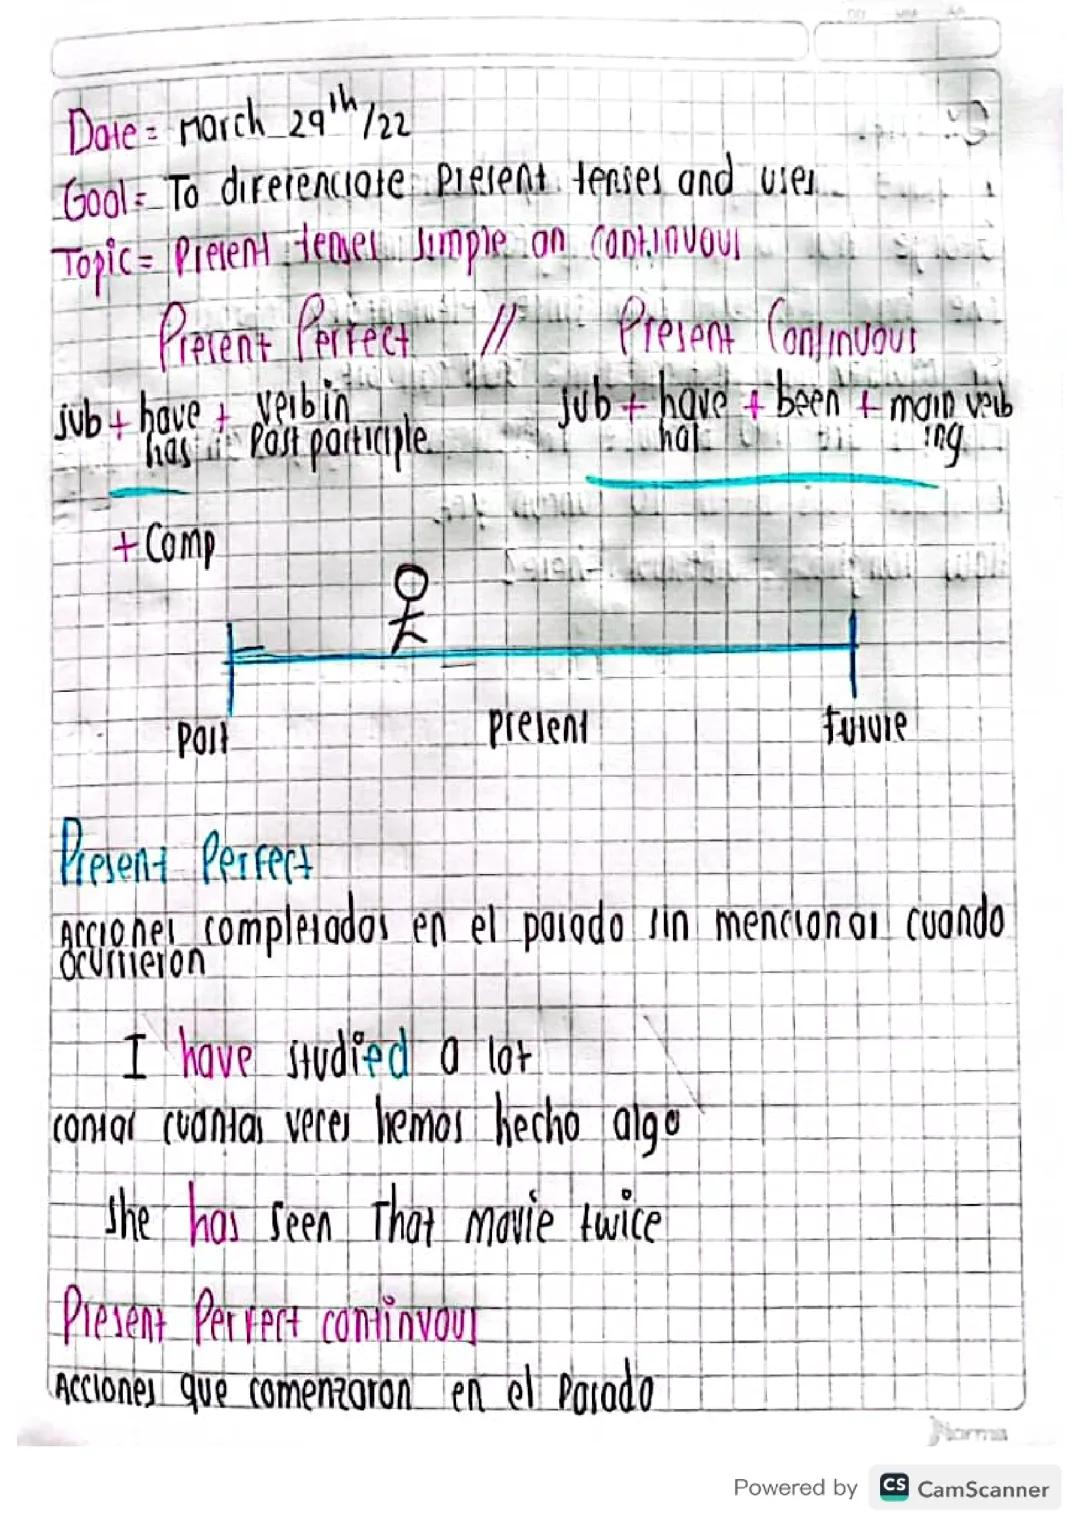 Date = March 29th/22
Goal = To diferenciate Present tenses and uses
Topic = Present tenses simple an continuous
Present Perfect // Present Continuous
sub + have + verb in sub + have + been + main verb
has Past participle has ing
+ Comp
Past present future
Present Perfect
Acciones completadas en el pasado sin mencionar cuando
ocurrieron
I have studied a lot
contar cuantas veces hemos hecho algo
She has seen That movie twice
Present Perfect continuous
Acciones que comenzaron en el Pasado
Norma
Powered by CS CamScanner